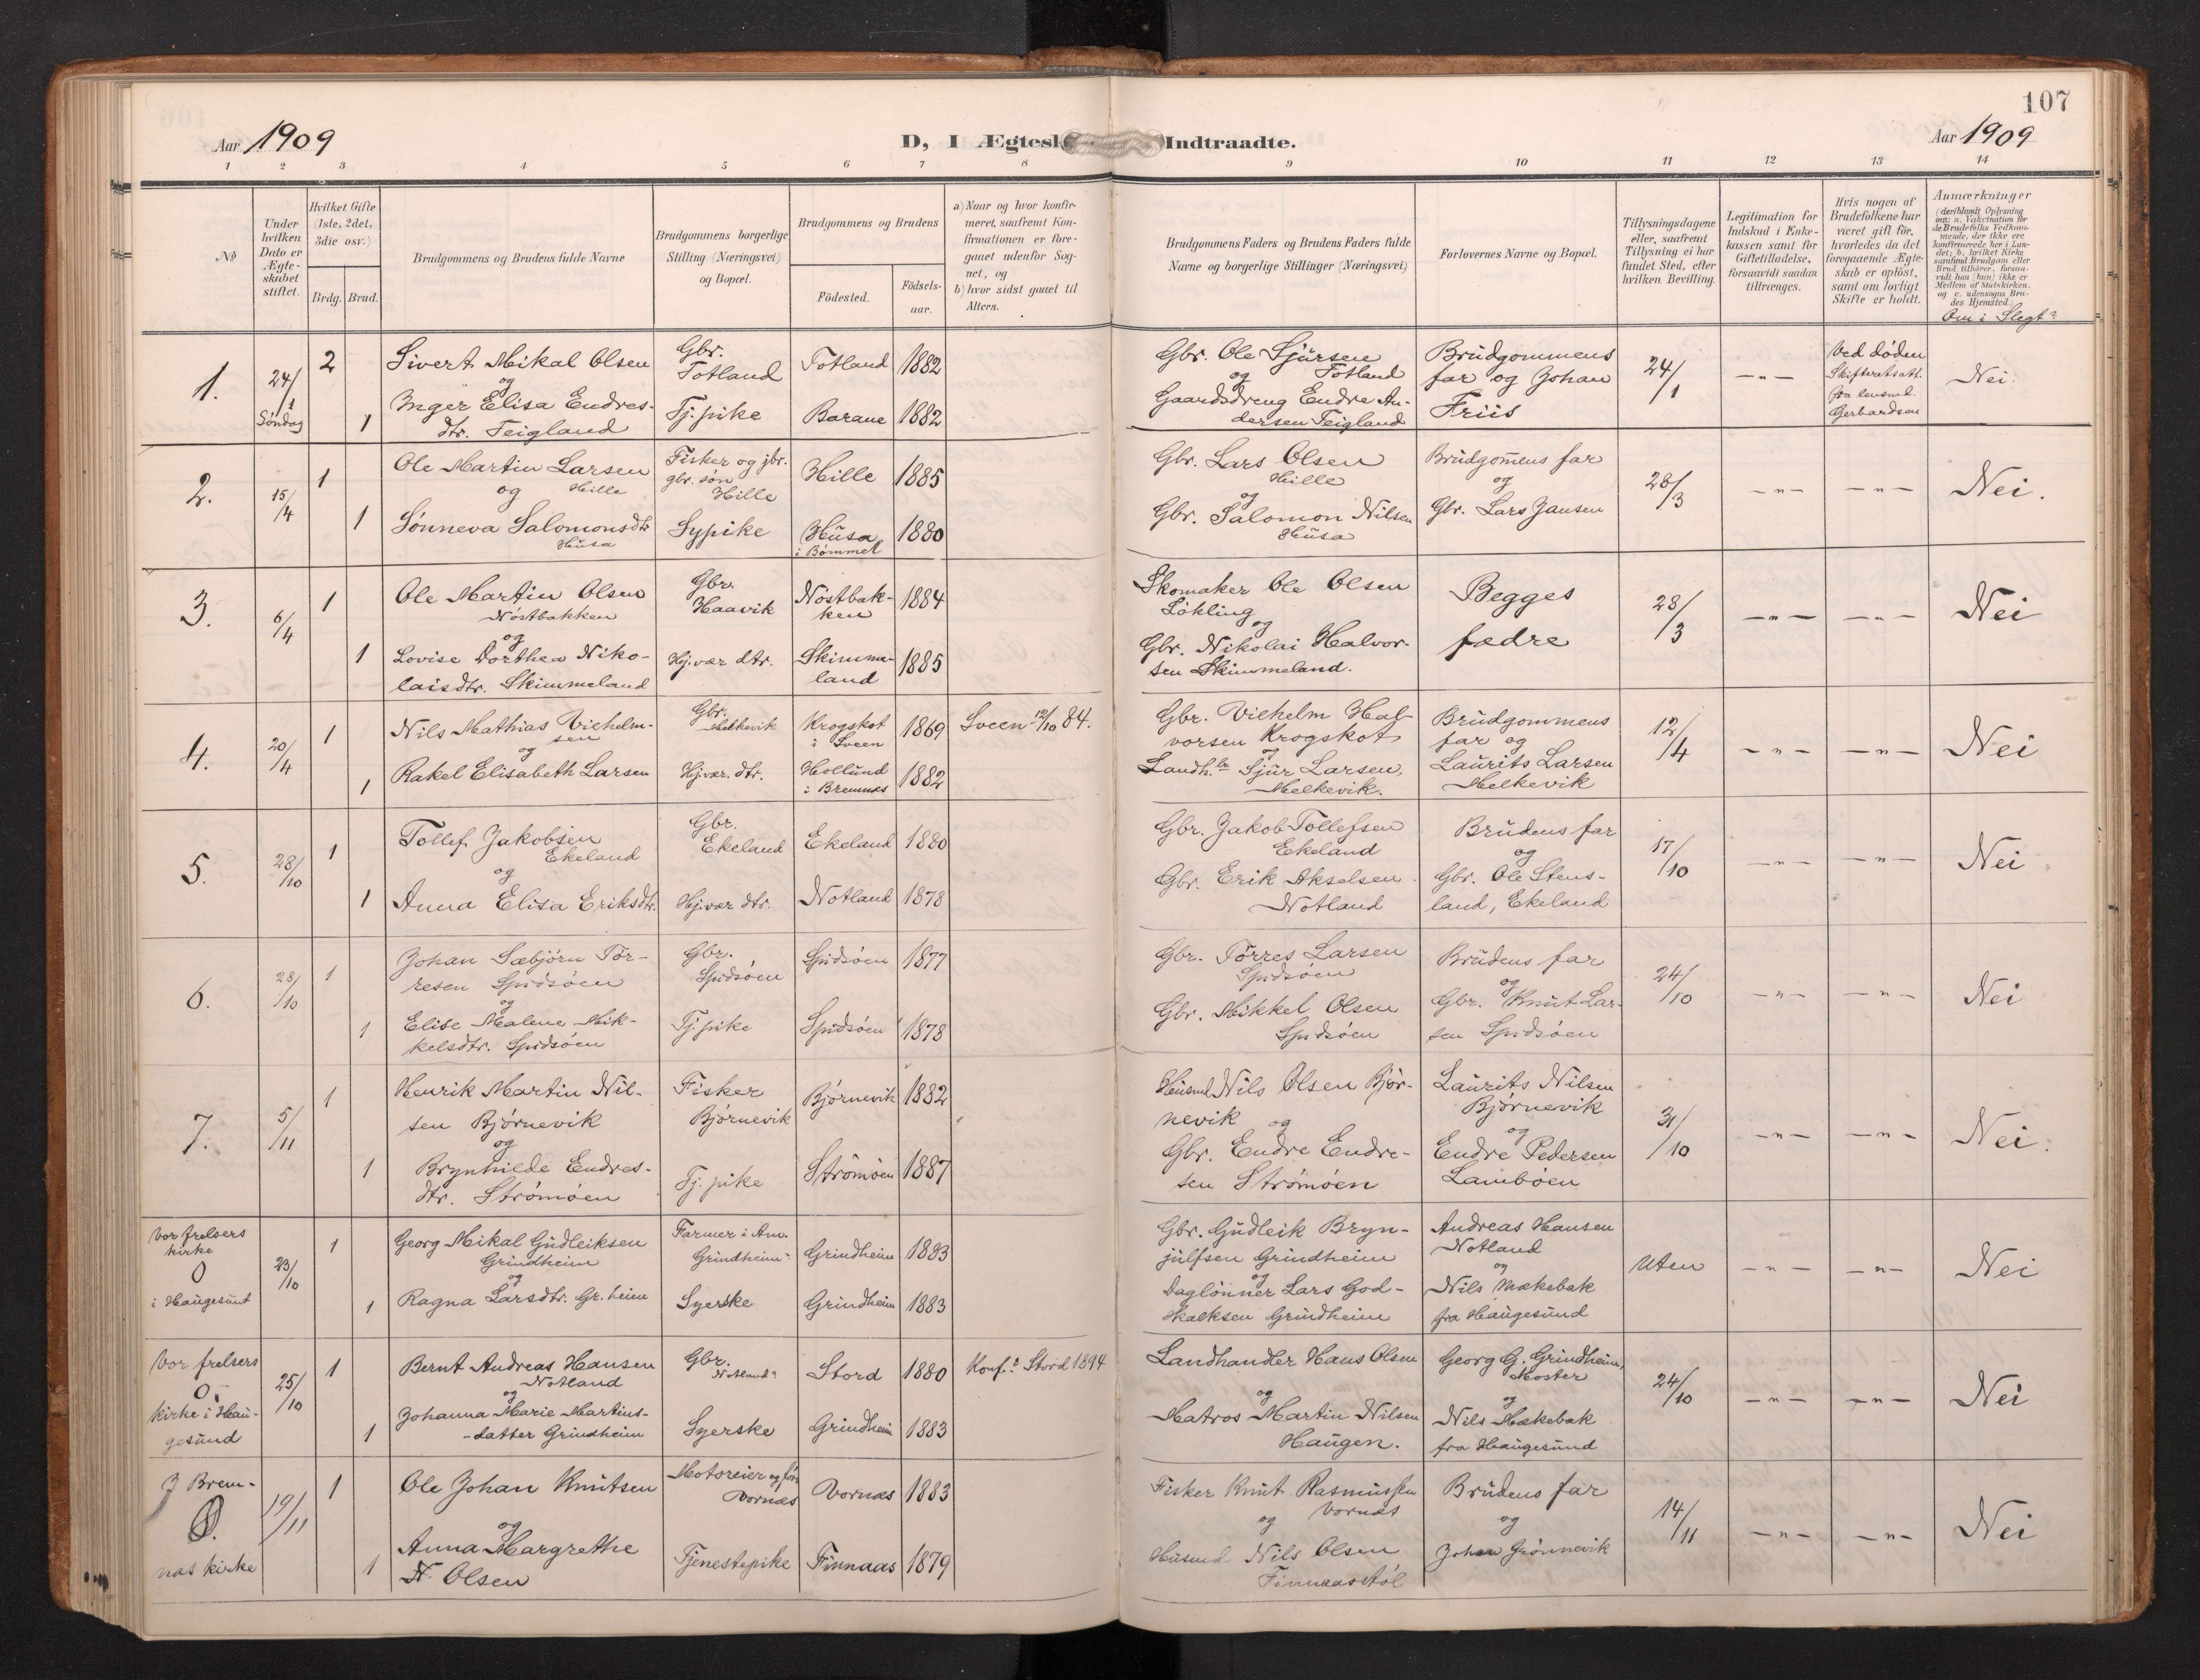 107
Aar 1909
D, I Ægtesk
Indtraadte.
Aar 1909
1 2 3 4 5 6 7 8 9 10 11 12 13 14
No
Under hvilken Dato er Ægte-skabet stiftet.
Hvilket Gifte (1ste, 2det, 3die osv.)
Brdg. Brud.
Brudgommens og Brudens fulde Navne
Brudgommens borgerlige Stilling (Næringsvei) og Bopæl.
Brudgommens og Brudens
Födested.
Födsels-aar.
a) Naar og hvor konfir-meret, saafremt Kon-firmationen er fore-gaaet udenfor Sog-net, og
b) hvor sidst gaaet til Alters.
Brudgommens Faders og Brudens Faders fulde Navne og borgerlige Stillinger (Næringsvei)
Forlovernes Navne og Bopæl.
Tillysningsdagene eller, saafremt Tillysning ei har fundet Sted, efter hvilken Bevilling.
Legitimation for Indskud i Enke-kassen samt for Giftetilladelse, forsaavidt saadan tiltrænges.
Hvis nogen af Brudefolkene har været gift för, hvorledes da det foregaaende Ægte-skab er oplöst, samt om lovligt Skifte er holdt.
Anmærkninger
(deriblandt Oplysning om: a. Vakcination for de Brudefolks Vedkom-mende, der ikke ere konfirmerede her i Lan-det; b. hvilket Kirke-samfund Brudgom eller Brud tilhörer, forsaa-vidt han (hun) ikke er Medlem af Statskirken. og c. udensogns Bru-des Hjemsted.)
Om i Slegt?
1.
24/1 Søndag
2
Sivert Mikal Olsen
og
Inger Elisa Endres-
dtr. Teigland
1
Gbr.
Totland
Tj. pike
Totland 1882
Barane 1882
Gbr. Ole Sjursen
Totland
og
Gaardsdreng Endre An-
dersen Teigland
Brudgommens
far og Johan
Friis
24/1
— " —
Ved døden
Skifteratsatt.
fra lensmd.
Gerhardsen
Nei.
2.
15/4
1
Ole Martin Larsen
og Hille
1
Sønneva Salomonsdtr
Husa
Fisker og jbr.
gbr. søn
Hille
Sypike
Hille 1885
Husa 1880
i Bømmel
Gbr. Lars Olsen
Hille
og
Gbr. Salomon Nilsen
Husa
Brudgom̄ens far
og
Gbr. Lars Jansen
28/3
— " — — " —
Nei.
3.
6/4
1
Ole Martin Olsen
Nøstbakken
og
1
Lovise Dorthea Niko-
laisdtr. Skimmeland
Gbr.
Haavik
Hj.vær dtr.
Nøstbak-
ken 1884
Skimme-
land 1885
Skomaker Ole Olsen
Løkling
og
Gbr. Nikolai Halvor-
sen Skimmeland.
Begges
fædre
28/3
— " — — " —
Nei
4.
20/4
1
Nils Mathias Vilhelm-
sen
og
1
Rakel Elisabeth Larsen
Gbr.
Mælkevik
Hj.vær. dtr.
Krogskot
i Sveen 1869
Hollund
i Bremnes 1882
Sveen 12/10 84.
Gbr. Vilhelm Hal-
vorsen Krogskot
og
Landh.lr Sjur Larsen,
Melkevik.
Brudgommens
far og
Laurits Larsen
Melkevik
12/4
— " — — " —
Nei
5.
28/10
1
Tollef Jakobsen
Ekeland
og
1
Anna Elisa Eriksdtr.
Gbr.
Ekeland
Hj.vær dtr.
Ekeland 1880
Notland 1878
Gbr. Jakob Tollefsen
Ekeland
Gbr. Erik Akselsen
Notland
Brudens far
og
Gbr. Ole Stens-
land, Ekeland
17/10
— " — — " —
Nei
6.
28/10
1
Johan Sæbjørn Tør-
resen Spidsøen
og
1
Elise Malene Mik-
kelsdtr. Spidsøen
Gbr.
Spidsøen
Tj. pike
Spidsøen 1877
Spidsøen 1878
Gbr. Tørres Larsen
Spidsøen
Gbr. Mikkel Olsen
Spidsøen
Brudens far
og
Gbr. Knut Lar-
sen Spidsøen
24/10
— " — — " —
Nei
7.
5/11
1
Henrik Martin Nil-
sen Bjørnevik
og
1
Brynhilde Endres-
dtr. Strømøen
Fisker
Bjørnevik
Tj. pike
Bjørnevik 1882
Strømøen 1887
Husmd Nils Olsen Bjør-
nevik og
Gbr. Endre Endre-
sen Strømøen
Laurits Nilsen
Bjørnevik
og
Endre Pedersen
Lambøen
31/10
— " — — " —
Nei.
Vor frelsers
kirke
0
i Haugesunt
23/10
1
Georg Mikal Gudleiksen
Grindheim
og
1
Ragna Larsdtr. Gr. heim
Farmer i Am.
Grindheim
Syerske
Grindheim 1883
Grindheim 1883
Gbr. Gudleik Bryn-
julfsen Grindheim
og
Dagløn̄er Lars God-
skalksen Grindheim
Andreas Hansen
Notland
og
Nils Mækebak
fra Haugesund
Uten
— " — — " —
Nei
Vor frelsers
0
kirke i Hau-
gesund
25/10
1
Bernt Andreas Hansen
Notland
og
1
Johanna Marie Martins-
datter Grindheim
Gbr.
Notland
Syerske
Stord 1880
Grindheim 1883
Konf. Stord 1894
Landhandler Hans Olsen
og
Matros Martin Nilsen
Haugen.
Georg G. Grindheim,
Moster
og
Nils Mækebak
fra Haugesund
24/10
— " — — " —
Nei
I Brem-
0.
nes kirke
19/11
1
Ole Johan Knutsen
og
1
Anna Margrethe
N. Olsen
Motoreier og
Vornæs
Tjenestepike
Vornæs 1883
Finnaas 1879
Fisker Knut Rasmussen
og Vornæs
Husmd Nils Olsen
Finnaasstøl
Brudens far
og
Johan Grønnevik
14/11
— " — — " —
Nei